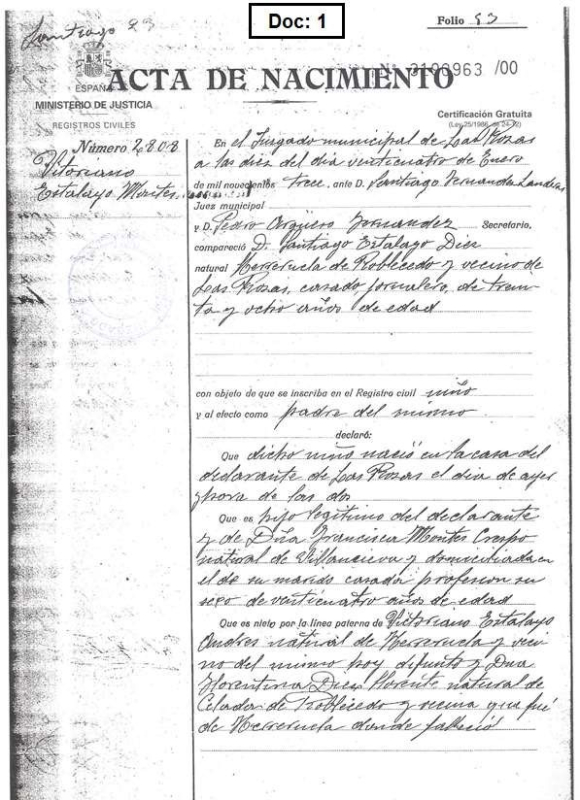 Doc: 1
Folio 93
Santiago 93
Nº 3100963 /00
ACTA DE NACIMIENTO
ESPAÑA
MINISTERIO DE JUSTICIA
REGISTROS CIVILES
Certificación Gratuita
(Ley 25/1986, de 24-12)
Número 2808
Vitoriano
Estalayo Montes
En el Juzgado municipal de Las Rozas
a las diez del dia venticuatro de Enero
de mil novecientos trece, ante D. Santiago Fernandez
Juez municipal
y D. Pedro Argüeso Fernandez Secretario,
compareció D. Santiago Estalayo Diez
natural Herreruela de Roblecedo y vecino de
Las Rozas, casado, jornalero, de trein
ta y ocho años de edad
con objeto de que se inscriba en el Registro civil niño
y al efecto como padre del mismo
declaró:
Que dicho niño nació en la casa del
declarante de Las Rozas el dia de ayer
y hora de las dos
Que es hijo legitimo del declarante
y de Dña Francisca Montes Crespo
natural de y domiciliada en
el de su marido casada profesion su
sexo de venticuatro años de edad
Que es nieto por la línea paterna de Victoriano Estalayo
Andres natural de Herreruela y veci
no del mismo hoy difunto y Dña
Florentina Diez Llorente natural de
Celada de Roblecedo y vecina que fué
de Herreruela donde falleció